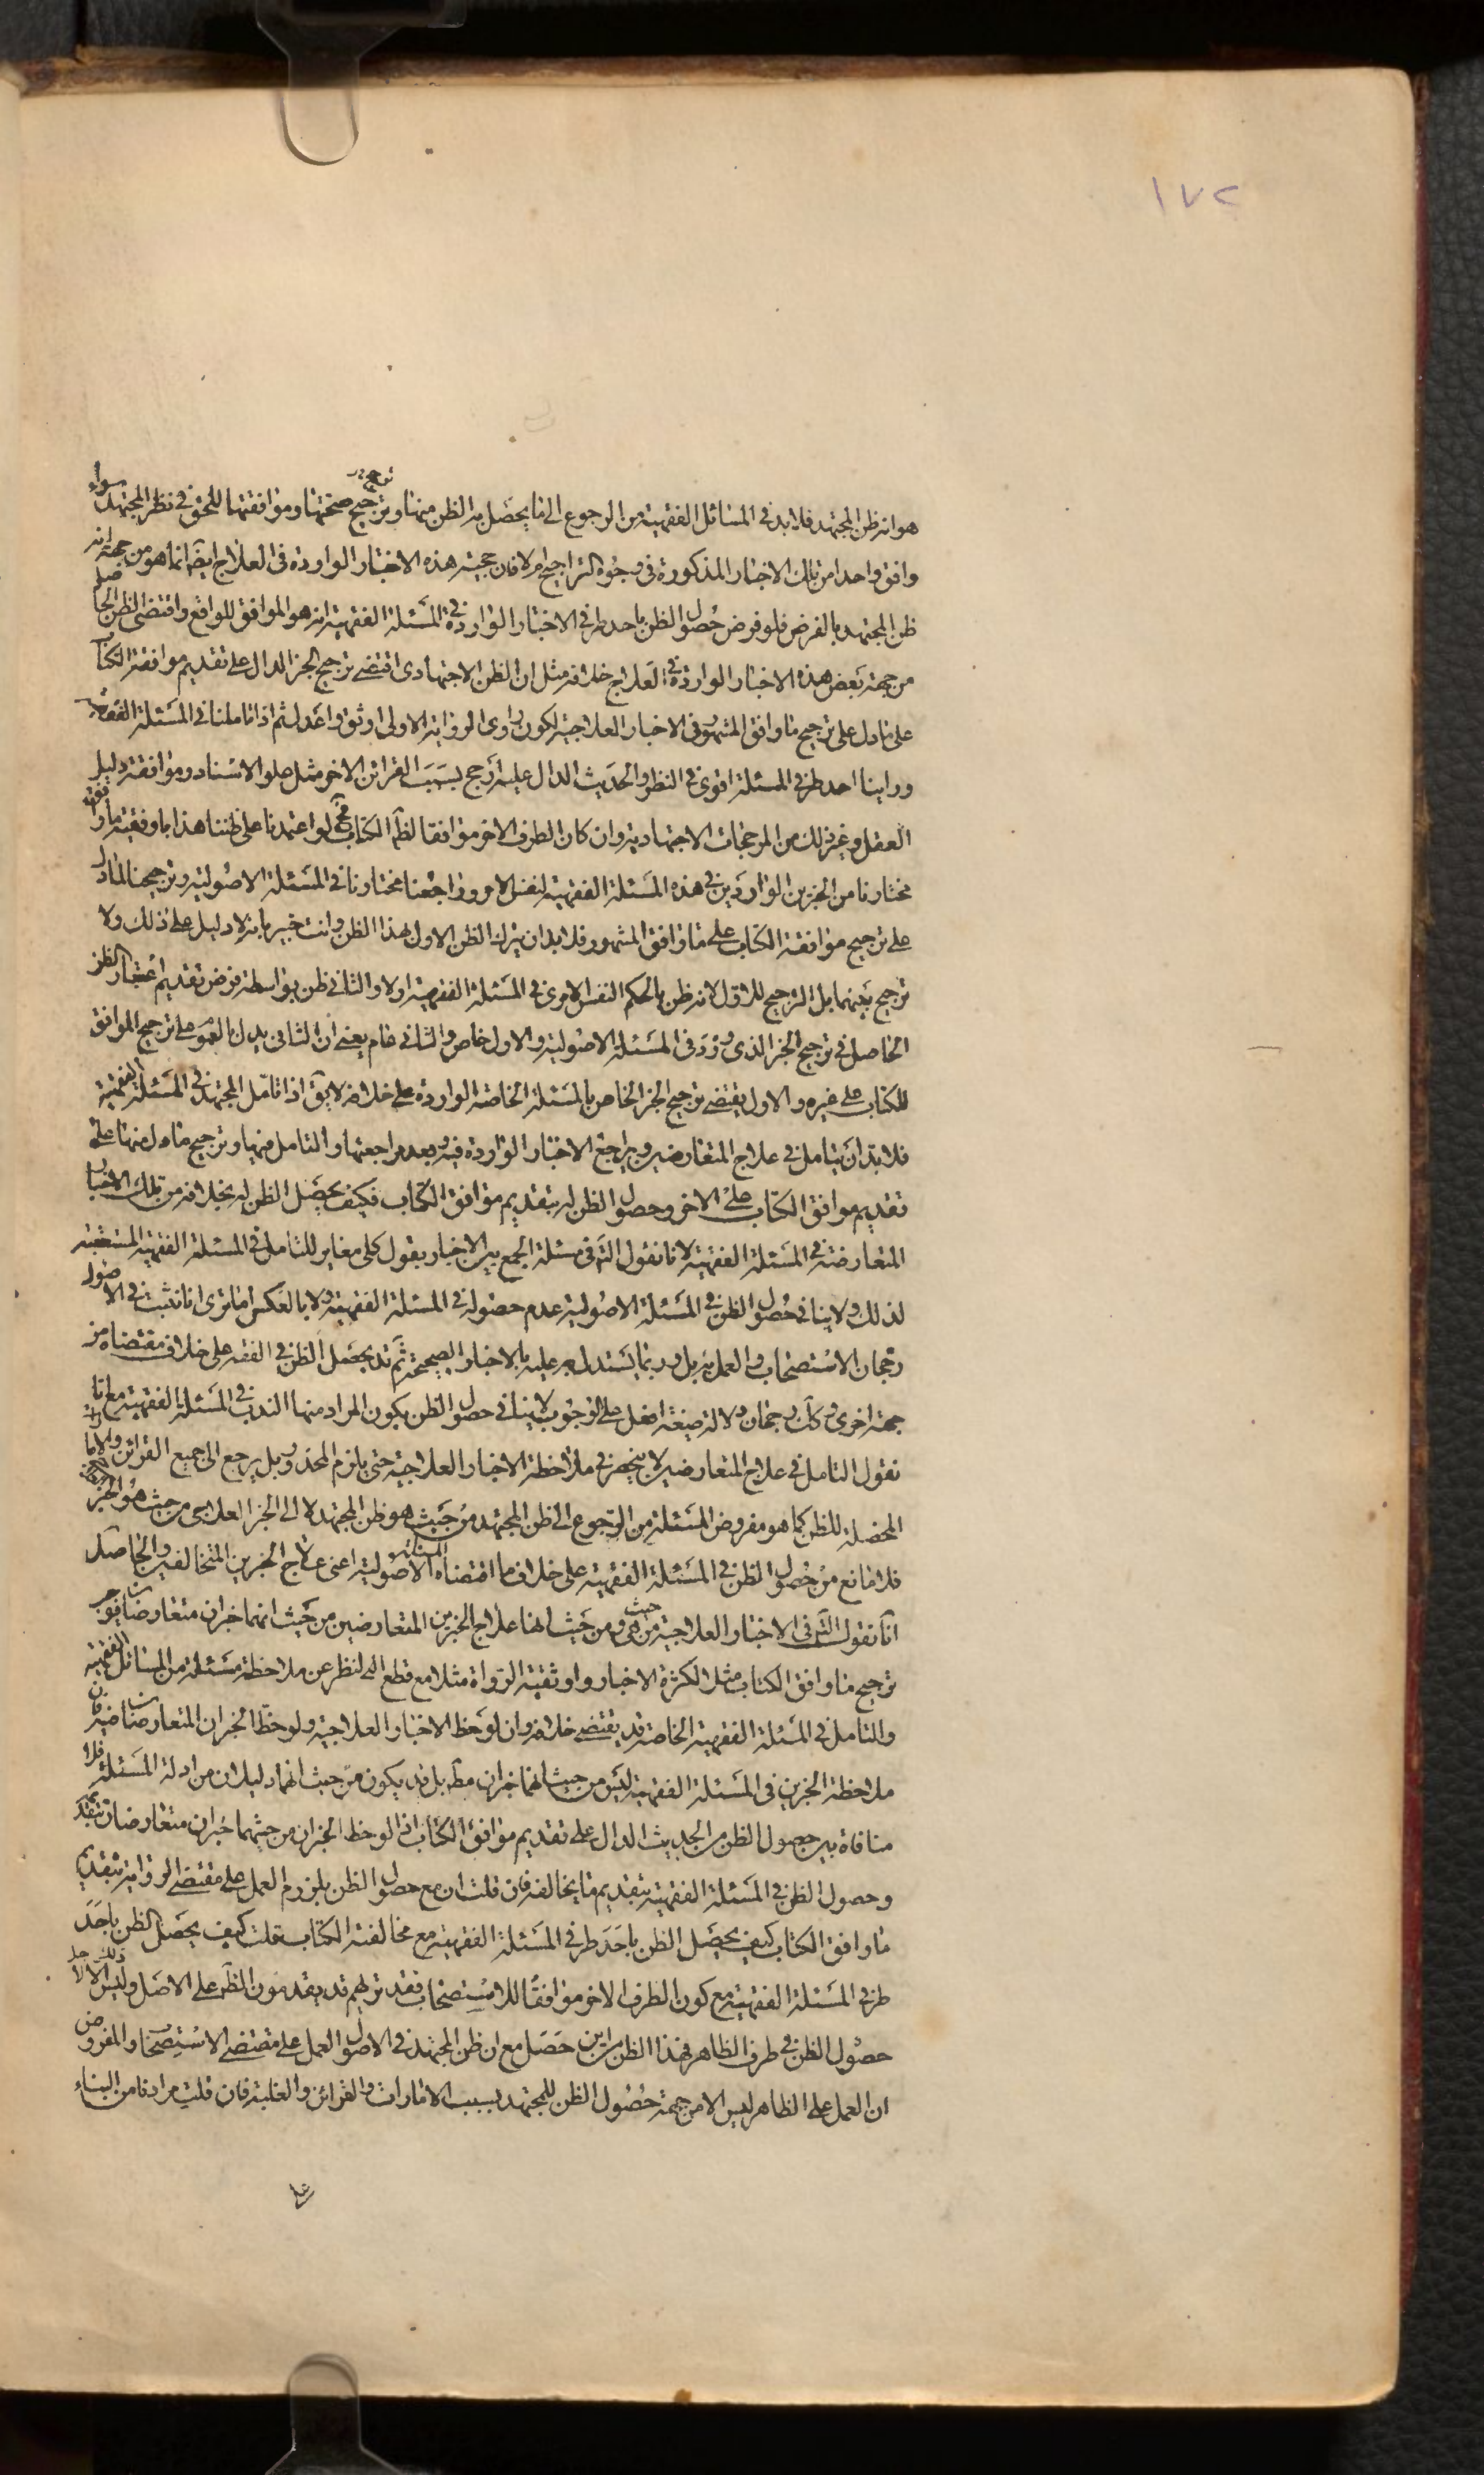 ١٧٢
هو انه ظن المجتهد فلا بد في المسائل الفقهية من الرجوع الى ما يحصل به الظن منها وترجيح صحتها وموافقتها للحق في نظر المجتهد سواء
وافق واحدا من تلك الاخبار المذكورة في وجوه التراجيح ام لا فان حجية هذه الاخبار الواردة في العلاج ايضا انما هو من جهة انه
ظن المجتهد بالفرض فلو فرض حصول الظن باحد طرفي الاخبار الواردة في المسئلة الفقهية انه هو الموافق للواقع واقتضى الظن الحاصل
من جهة بعض هذه الاخبار الواردة في العلاج خلافه مثل ان الظن الاجتهادى اقتضى ترجيح الخبر الدال على تقديم موافقة الكتاب
على ما دل على ترجيح ما وافق المشهور في الاخبار العلاجية لكون راوى الرواية الاولى اوثق واعدل ثم اذا تاملنا في المسئلة الفقهية
وراينا احد طرفي المسئلة اقوى في النظر والحديث الدال عليه ارجح بسبب القرائن الاخر مثل علو الاسناد وموافقة دليل
العقل وغير ذلك من المرجحات الاجتهادية وان كان الطرف الاخر موافقا لظاهر الكتاب فح لو اعتمدنا على ظننا هذا باوفقية ما وافقه
مختارنا من الخبرين الواردين في هذه المسئلة الفقهية لنفس الامر وراجعنا مختارنا في المسئلة الاصولية وترجيحنا لما دل
على ترجيح موافقة الكتاب على ما وافق المشهور فلا بد ان يترك الظن الاول لهذا الظن وانت خبير بانه لا دليل على ذلك ولا
ترجيح بينهما بل الترجيح للاول لانه ظن بالحكم النفس الامرى في المسئلة الفقهية اولا والثاني ظن بواسطة فرض تقديم اعتبار الظن
الحاصل في ترجيح الخبر الذى ورد في المسئلة الاصولية والاول خاص والثاني عام يعنى ان الثاني يدل بالعموم على ترجيح الموافق
للكتاب على غيره والاول يقتضى ترجيح الخبر الخاص بالمسئلة الخاصة الواردة على خلافه لا يق اذا تامل المجتهد في المسئلة الفقهية
فلا بد ان يتامل في علاج المتعارضين ويراجع الاخبار الواردة فيه وبعد مراجعتها والتامل فيها وترجيح ما دل منها على
تقديم موافق الكتاب على الاخر وحصول الظن له بتقديم موافق الكتاب فكيف يحصل الظن له بخلافه من تلك الاخبار
المتعارضة في المسئلة الفقهية لانا نقول التامل في مسئلة الجمع بين الاخبار بقول كلى مغاير للتامل في المسئلة الفقهية المستتبعة
لذلك ولا ينافي حصول الظن في المسئلة الاصولية عدم حصوله في المسئلة الفقهية ولا بالعكس اما ترى انا نثبت في الاصول
رجحان الاستصحاب والعمل به بل وربما يستدل به عليه بالاخبار الصحيحة ثم قد يحصل الظن في الفقه على خلاف مقتضاه من
جهة اخرى وكان رجحان دلالة صيغة افعل على الوجوب لا ينافي حصول الظن بكون المراد منها الندب في المسئلة الفقهية مع انا
نقول التامل في علاج المتعارضين لا ينحصر في ملاحظة الاخبار العلاجية حتى يلزم المحذور بل يرجع الى جميع القرائن والامارات
المحصلة للظن كما هو مفروض المسئلة من الرجوع الى ظن المجتهد من حيث هو ظن المجتهد لا الى الخبر العلاجى من حيث هو الخبر
فلا مانع من حصول الظن في المسئلة الفقهية على خلاف ما اقتضاه المسئلة الاصولية اعنى علاج الخبرين المتخالفين والحاصل
انا نقول التامل في الاخبار العلاجية من حيث هي ومن حيث انها علاج الخبرين المتعارضين من حيث انهما خبران متعارضان يوجب
ترجيح ما وافق الكتاب مثل الكثرة الاخبار واوثقية الرواة مثلا مع قطع النظر عن ملاحظة مسئلة من المسائل الفقهية
والتامل في المسئلة الفقهية الخاصة قد يقتضى خلافه وان لوحظ الاخبار العلاجية ولوحظ الخبران المتعارضان فيه فان
ملاحظة الخبرين في المسئلة الفقهية ليس من حيث انهما خبران مط بل قد يكون من حيث انهما دليلان من ادلة المسئلة فلا
منافاة بين حصول الظن من الحديث الدال على تقديم موافق الكتاب اذا لوحظ الخبران من حيث هما خبران متعارضان بتقديمه
وحصول الظن في المسئلة الفقهية بتقديم ما يخالفه فان قلت ان مع حصول الظن بلزوم العمل على مقتضى الرواية بتقديم
ما وافق الكتاب كيف يحصل الظن باحد طرفي المسئلة الفقهية مع مخالفة الكتاب قلت كيف يحصل الظن باحد
طرفي المسئلة الفقهية مع كون الطرف الاخر موافقا للاستصحاب فقد تريهم قد يقدمون الظاهر على الاصل وليس ذلك الا لاجل
حصول الظن في طرف الظاهر فهذا الظن من اين حصل مع ان ظن المجتهد في الاصول العمل على مقتضى الاستصحاب والمفروض
ان العمل على الظاهر ليس الا من جهة حصول الظن للمجتهد بسبب الامارات والقرائن والغلبة فان قلت مرادنا من البناء
على